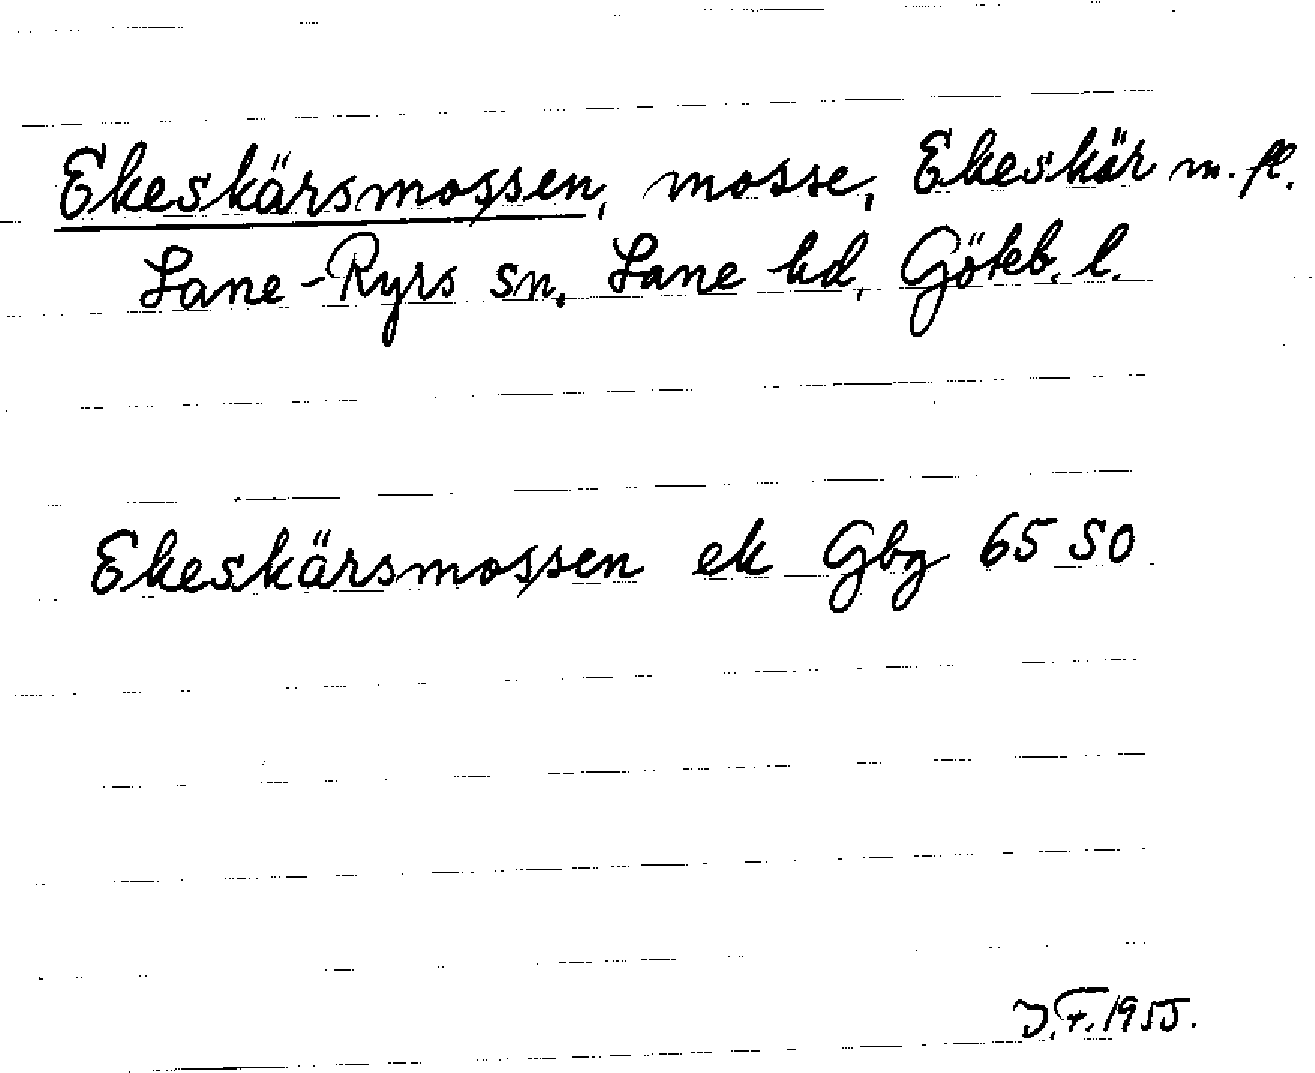 Ekeskärsmossen, mosse, Ekeskär m. fl.
Lane-Ryrs sn, Lane hd, Göteb. l.
Ekeskärsmossen ek Gbg 65 SO
J.F. 1955.